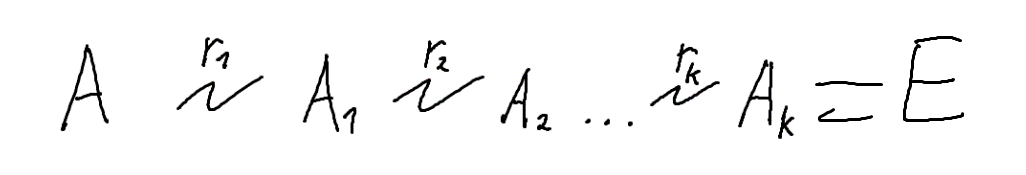 A r₁ ⇝ A₁ r₂ ⇝ A₂ ... rₖ ⇝ Aₖ = E